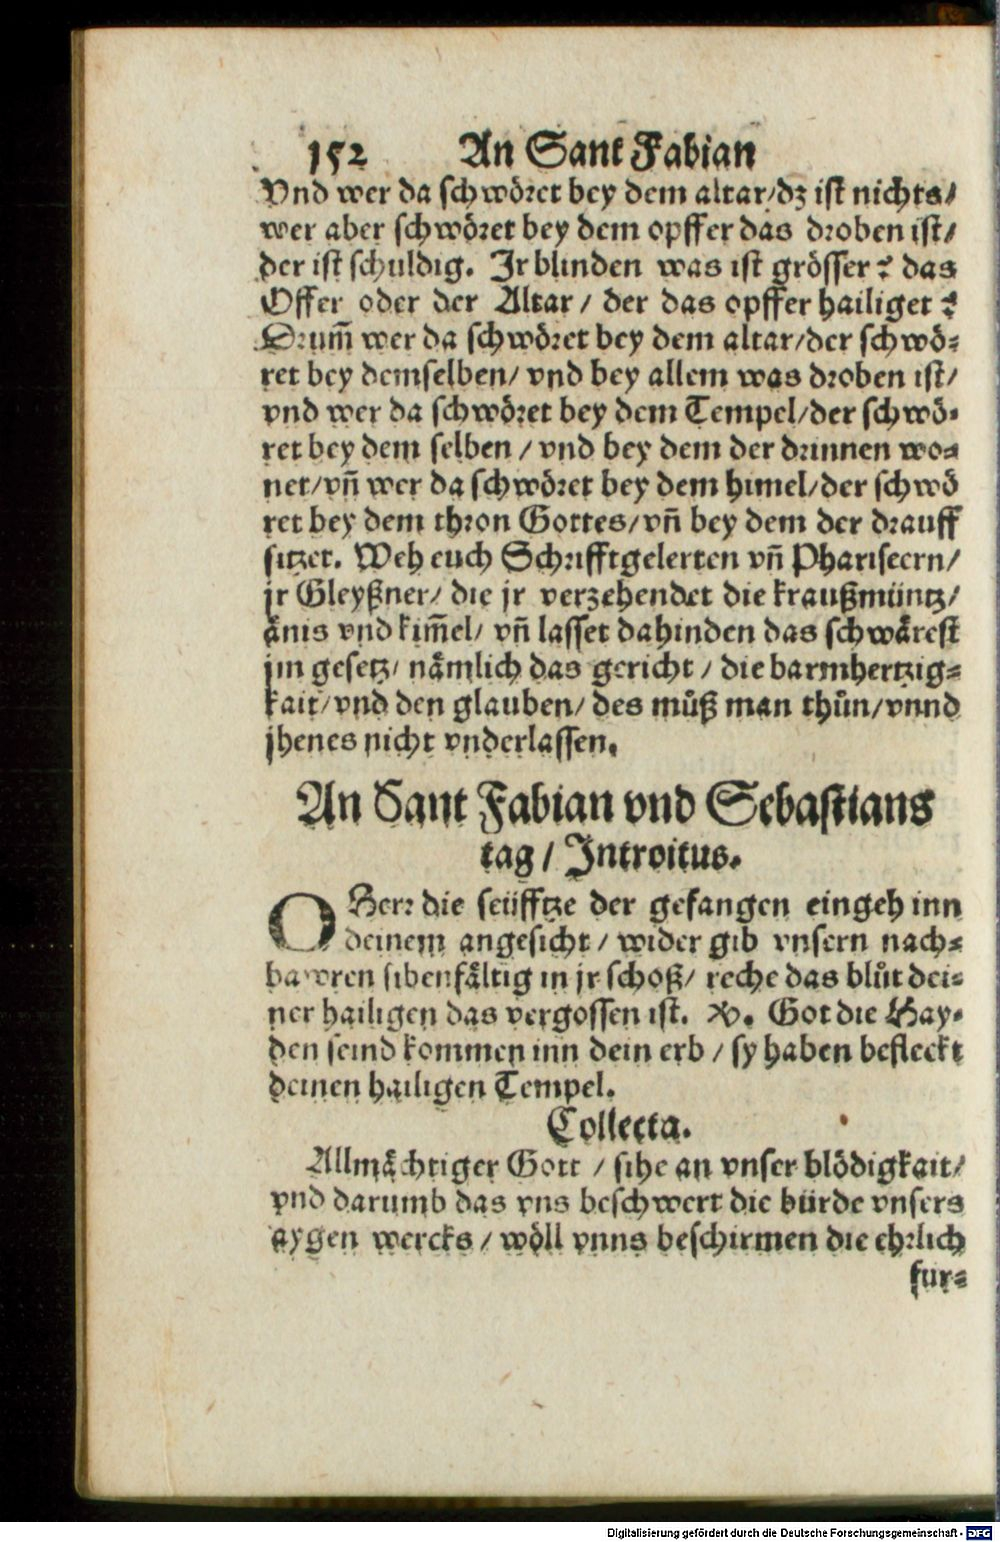 152 An Sant Fabian
Vnd wer da schwöret bey dem altar/dz ist nichts/
wer aber schwöret bey dem opffer das droben ist/
der ist schuldig. Ir blinden was ist grösser? das
Offer oder der Altar / der das opffer hailiget?
Drum̃ wer da schwöret bey dem altar/der schwö-
ret bey demselben/ vnd bey allem was droben ist/
vnd wer da schwöret bey dem Tempel/der schwö-
ret bey dem selben / vnd bey dem der drinnen wo-
net/vn̄ wer da schwöret bey dem himel/der schwö
ret bey dem thron Gottes/vn̄ bey dem der drauff
sitzet. Weh euch Schrifftgelerten vn̄ Phariseern/
jr Gleyßner/ die jr verzehendet die kraußmüntz/
änis vnd kim̃el/ vn̄ lasset dahinden das schwårest
jm gesetz/ nämlich das gericht / die barmhertzig-
kait/vnd den glauben/ des můß man thůn/vnnd
jhenes nicht vnderlassen.
An Sant Fabian vnd Sebastians
tag / Introitus.
O Herr die seüfftze der gefangen eingeh inn
deinem angesicht / wider gib vnsern nach-
bawren sibenfältig in jr schoß/ reche das blůt dei-
ner hailigen das vergossen ist. V. Got die Hay-
den seind kommen inn dein erb / sy haben befleckt
deinen hailigen Tempel.
Collecta.
Allmächtiger Gott / sihe an vnser blödigkait/
vnd darumb das vns beschwert die bürde vnsers
aygen wercks / wöll vnns beschirmen die ehrlich
fur-
Digitalisierung gefördert durch die Deutsche Forschungsgemeinschaft - DFG